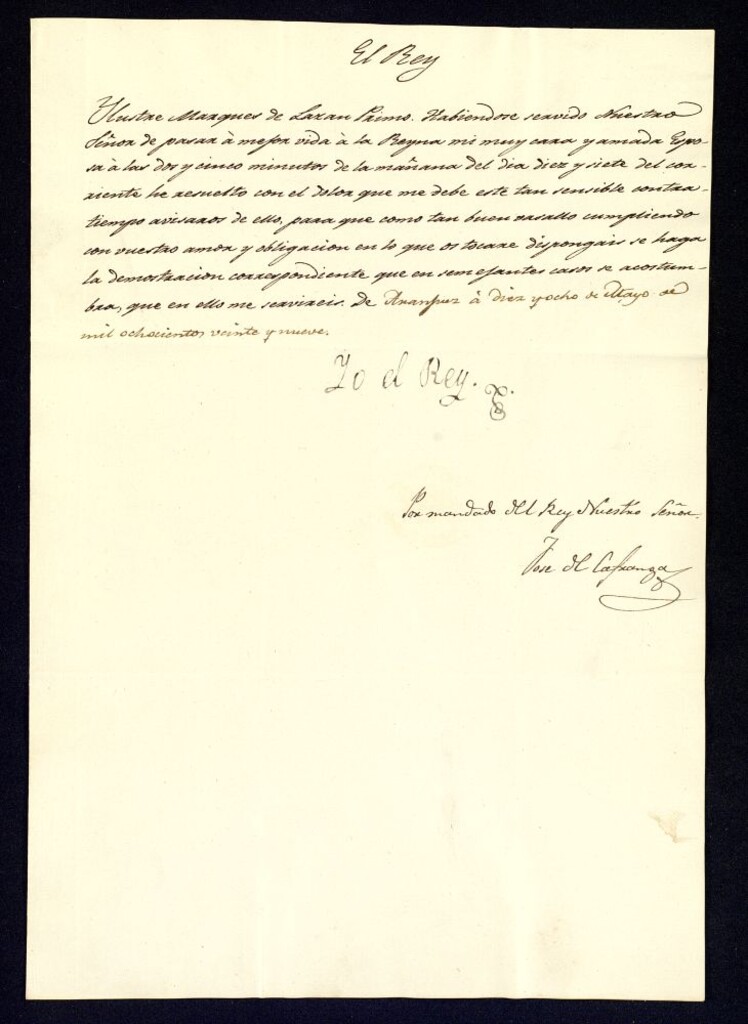 El Rey
Ylustre Marques de Lazan Primo. Habiendose servido Nuestro
Señor de pasar à mejor vida à la Reyna mi muy cara y amada Espo-
sa à las dos y cinco minutos de la mañana del dia diez y siete del cor-
riente he resuelto con el dolor que me debe este tan sensible contra-
tiempo avisaros de ello, para que como tan buen vasallo cumpliendo
con vuestro amor y obligacion en lo que os tocare dispongais se haga
la demostracion correspondiente que en semejantes casos se acostum-
bra, que en ello me servireis. De Aranjuez à diez y ocho de Mayo de
mil ochocientos veinte y nueve.
Yo el Rey.
Por mandado del Rey Nuestro Señor.
Jose de Cafranga